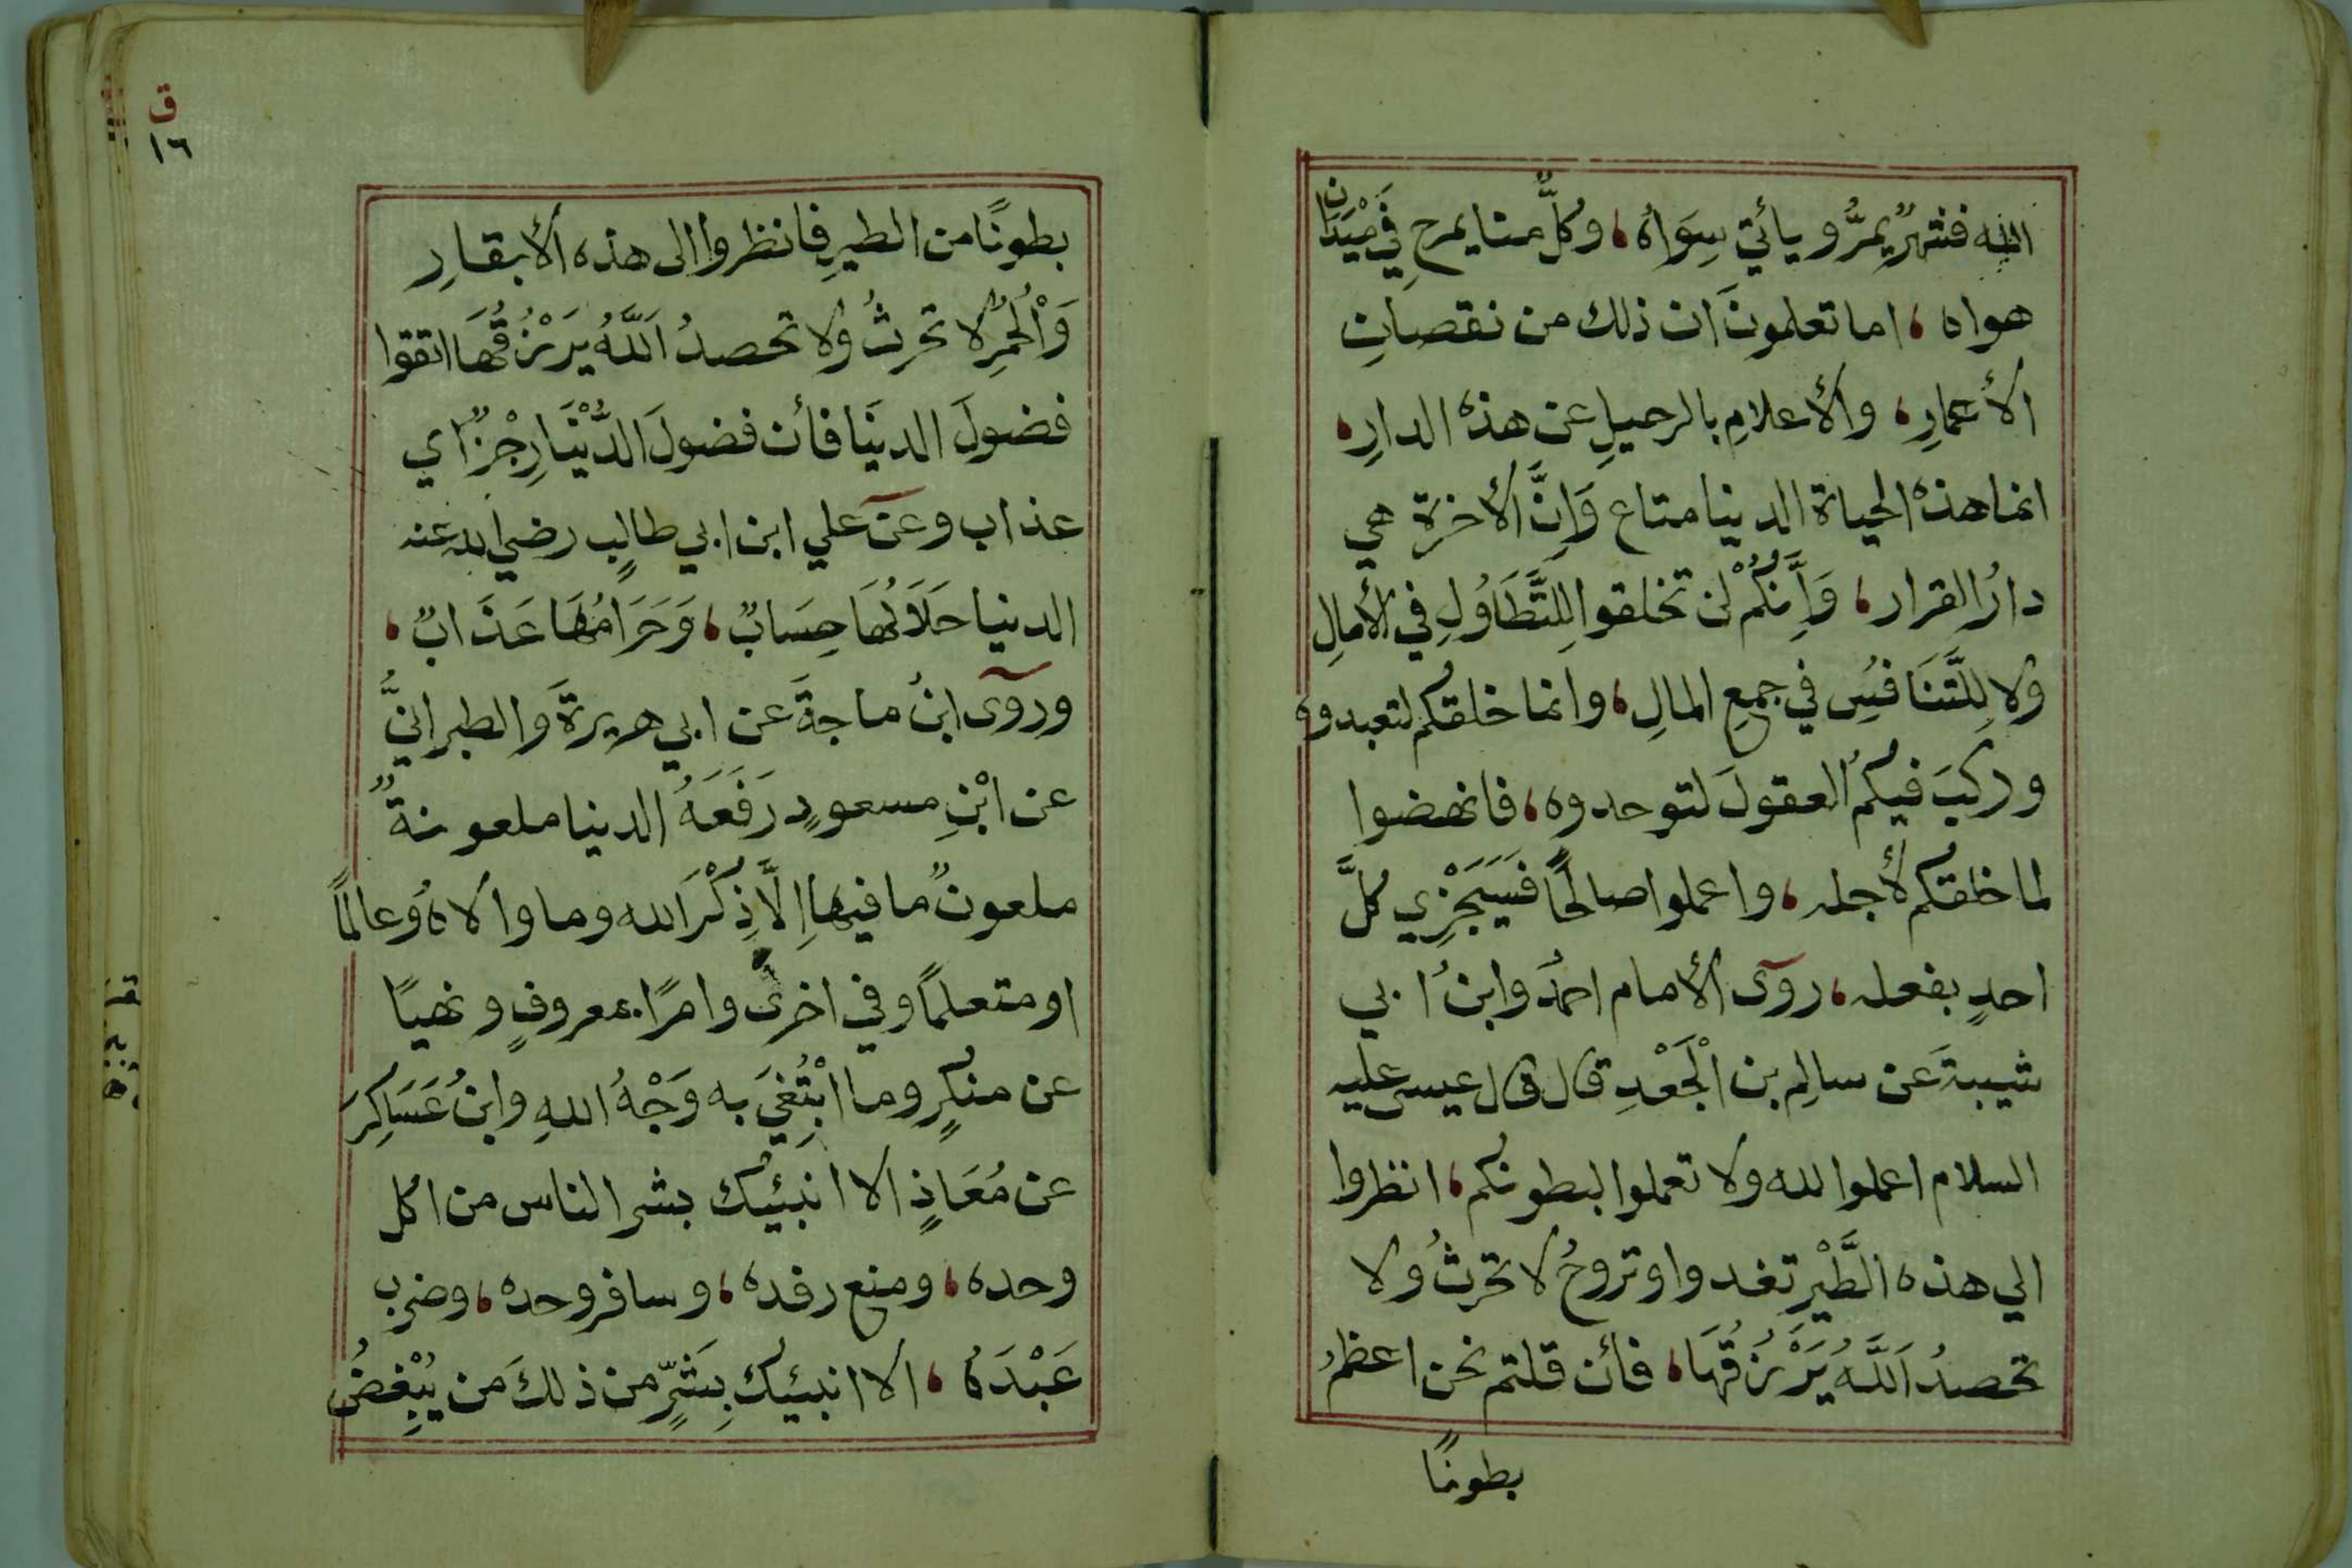 الله فشهرٌ يمرُّ ويأتي سِوَاهُ، وكلٌّ منا يمرح فِي مَيْدَان
هواه، اما تعلمونَ ان ذلك من نقصانِ
الأعمارِ، والأعلامِ بالرحيلِ عن هذه الدارِ،
انما هذه الحياة الدينا متاع وَاِنَّ الأخرة هي
دارُ القرار، وَاِنَّكُمْ لن تخلقوا لِلتَّطَاوُلِ في الأمالِ
ولا لِلتَّنَافُسِ في جمعِ المالِ، وانما خلقكم لتعبدوه
وركبَ فيكمُ العقولَ لتوحدوه، فانهضوا
لما خلقكم لأجله، واعملوا صالحًا فَسَيَجْزِي كلَّ
احدٍ بفعله، روى الأمام احمدُ وابنُ ابي
شيبةَ عن سالِم بن الْجَعْدِ قال قال عيسى عليه
السلام اعملوا لله ولا تعملوا لبطونكم، انظروا
الي هذه الطَّيْرِ تغدوا وتروحُ لا تحرثُ ولا
تحصدُ اَللَّهُ يَرْزُقُهَا، فأن قلتم نحن اعظمُ
بطونًا
ق
١٦
بطونًا من الطيرِ فانظروا الى هذه الأبقارِ
وَالْحُمُرِ لا تحرثُ ولا تحصدُ اَللَّهُ يَرْزُقُهَا اتقوا
فضولَ الدينَا فأن فضولَ الدُّنْيَا رِجْزٌ اي
عذاب وعن علي ابن ابي طالبٍ رضي الله عنه
الدينيا حَلَالُهَا حِسَابٌ، وَحَرَامُهَا عَذَابٌ،
وروى ابنُ ماجةَ عن ابي هريرةَ والطبرانيُّ
عن ابْنِ مسعودٍ رَفَعَهُ الدينا ملعونةٌ
ملعونٌ ما فيها اِلَّا ذِكْرَ الله وما والاهُ وعالمًا
او متعلمًا وفي اخرى وامرًا بمعروفٍ ونهيًا
عن منكرٍ وما ابْتُغِيَ به وَجْهُ اللهِ وابنُ عَسَاكِرَ
عن مُعَاذٍ الا انبئيك بشر الناس من اكل
وحده، ومنع رفده، وسافر وحده، وضرب
عَبْدَهُ، الا انبئيك بِشَرٍّ من ذلكَ من يُبْغِضُ